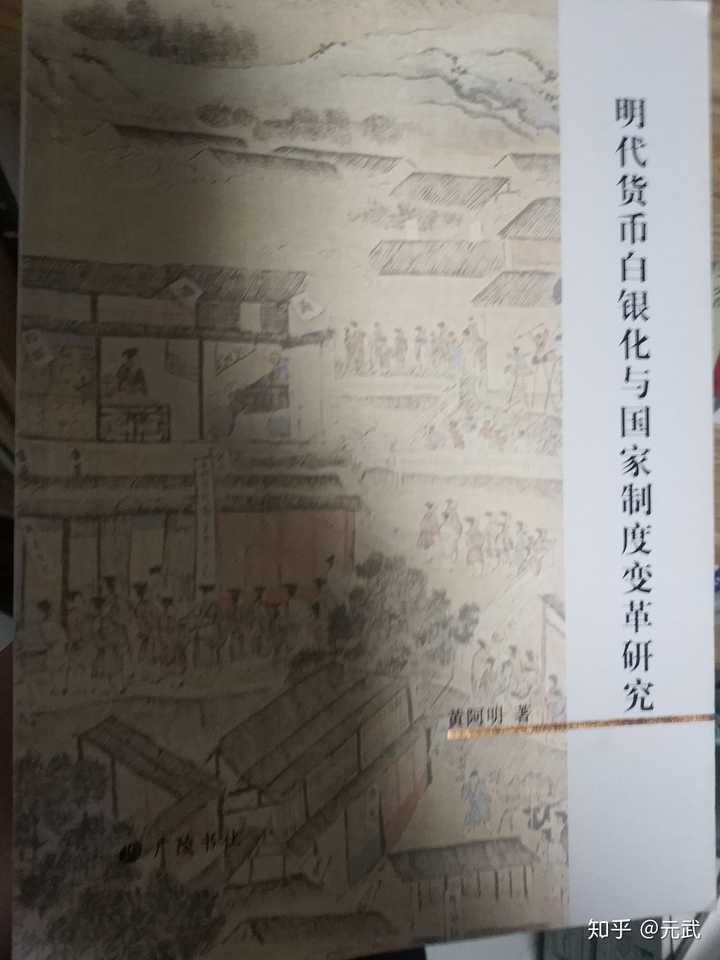 明代货币白银化与国家制度变革研究
黄阿明 著
广陵书社
知乎 @元武